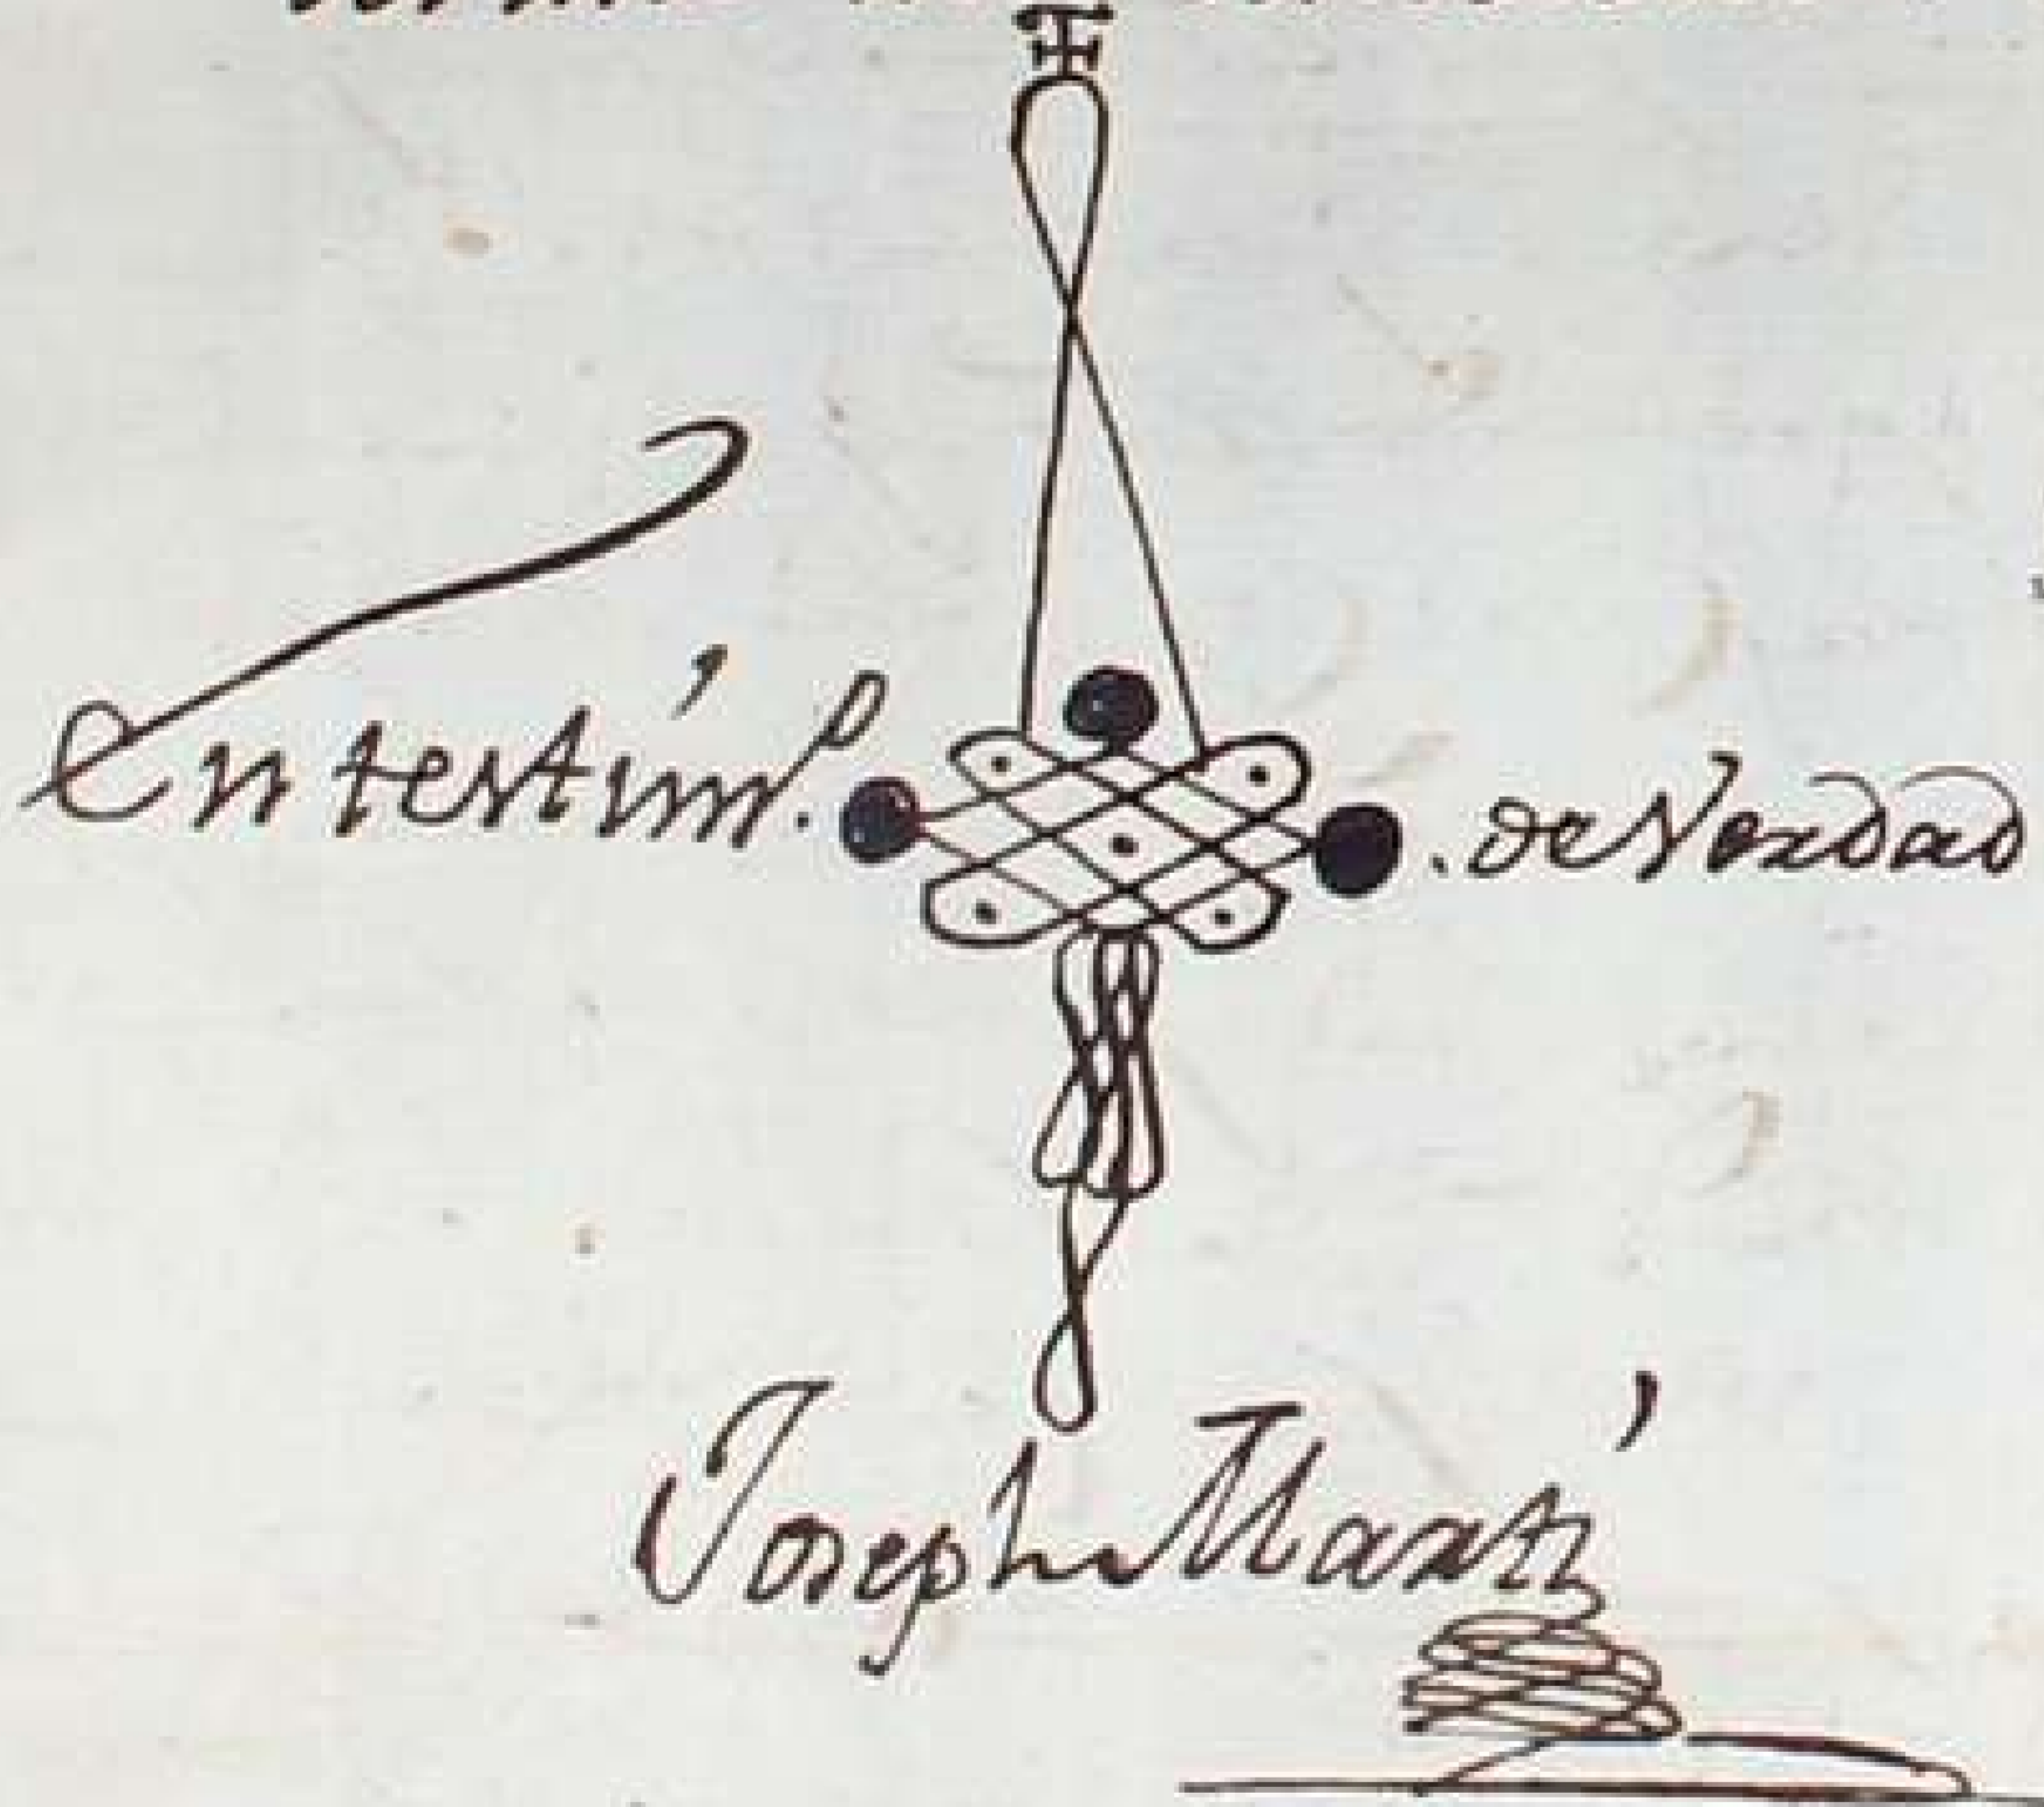 En testim.º de Verdad
Joseph Martí